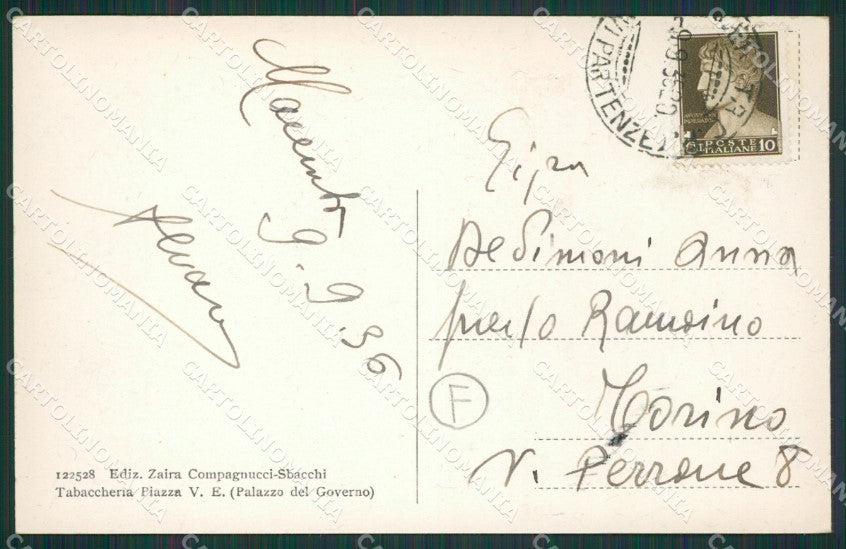 Macerata
9.9.36
Alvaro
122528 Ediz. Zaira Compagnucci-Sbacchi
Tabaccheria Piazza V. E. (Palazzo del Governo)
PARTENZE
9.9.36
POSTE
ITALIANE 10
Anna
presso
Torino
V. Perrone 8
F
CARTOLINOMANIA